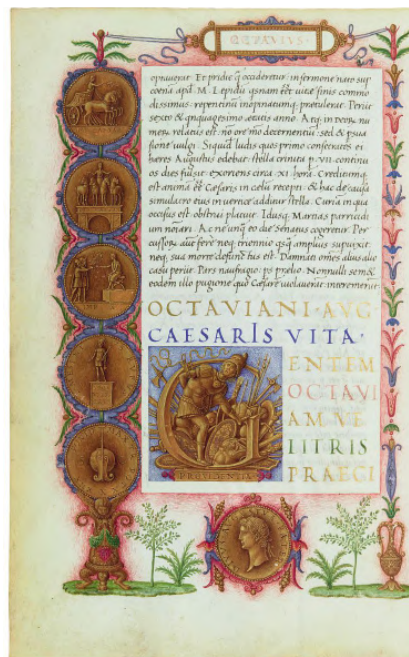 OCTAVIVS
optaverat. Et pridie q̃ occideretur: in sermone nato sup
coena apđ. M. Lepidũ: qsnam eẽt vitæ finis commo
dissimus: repentinũ inopinatumq; prætulerat. Periit
sexto & quinquagesimo ætatis anno. Atq; in deorũ nu
merũ relatus est: nõ ore mõ decernentiũ: sed & psua
sione vulgi. Siquidẽ ludis quos primo consecratos ei
heres Augustus edebat: stella crinita p. VII. continu
os dies fulsit: exoriens circa .XI. horã. Creditumq;
est animã eẽ Cæsaris in cælũ recepti: & hac de causa
simulacro eius in vertice additur stella. Curia in qua
occisus est obstrui placuit. Idusq; Martias parricidi
um nõiari. Ac ne unq̃ eo die senatus cogeretur. Per
cussorũ aũt fere neq; triennio qsq̃ amplius supvixit:
neq; sua morte defunctus est. Damnati omẽs alius alio
casu periit. Pars naufragio: ps prœlio. Nonnulli semet
eodem illo pugione quo Cæsarẽ violaverãt interemerũt
OCTAVIANI · AVG
CAESARIS VITA ·
G
ENTEM
OCTAVI
AM VE
LITRIS
PRAECI
PROVIDENTIA